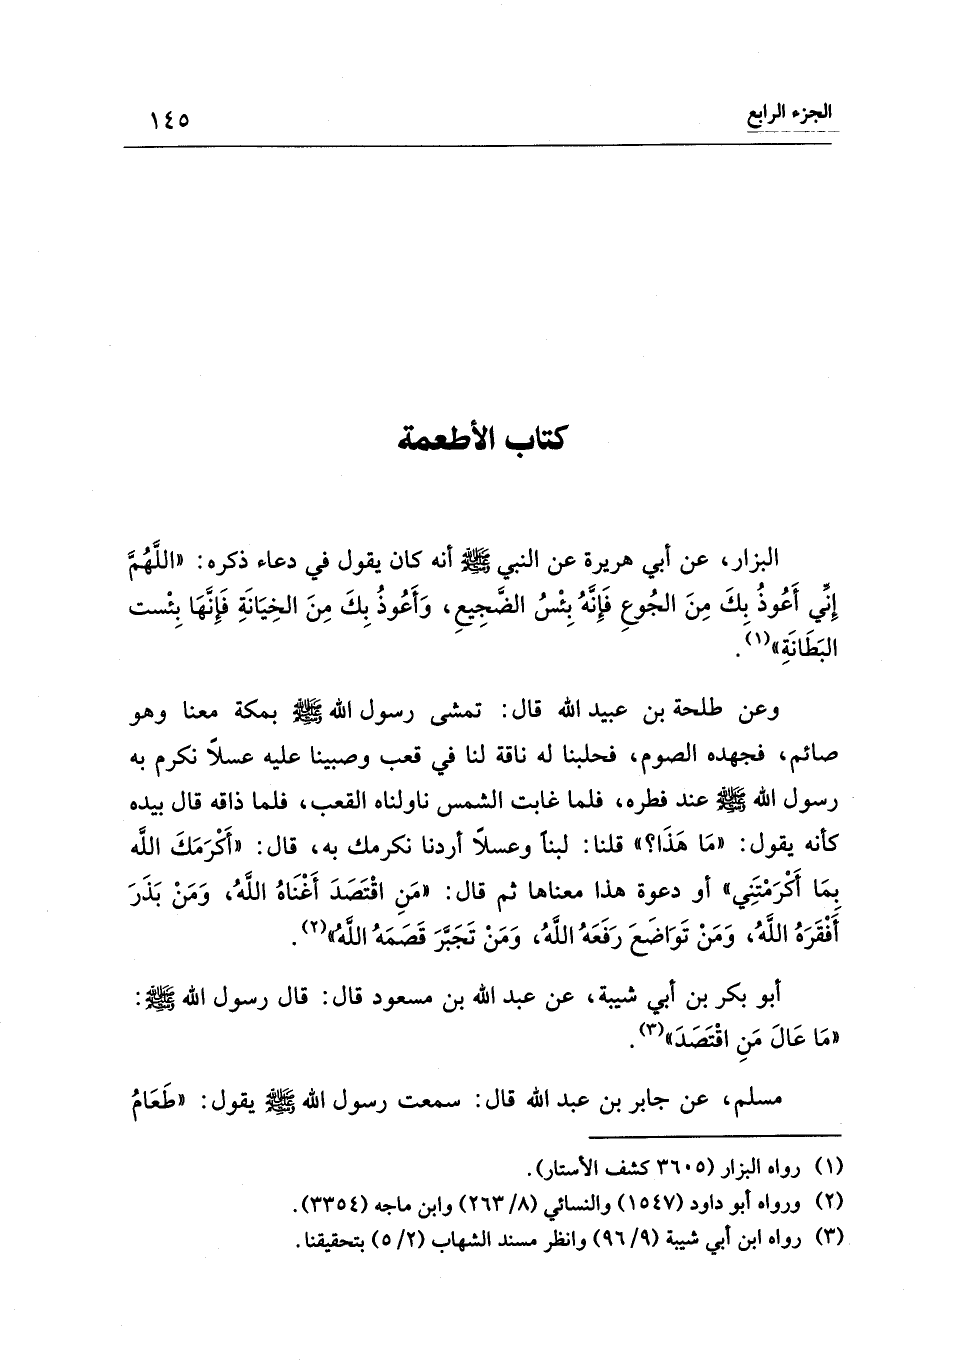 الجزء الرابع
١٤٥
كتاب الأطعمة
البزار، عن أبي هريرة عن النبي ﷺ أنه كان يقول في دعاء ذكره: «اللَّهُمَّ
إِنِّي أَعُوذُ بِكَ مِنَ الجُوعِ فَإِنَّهُ بِئْسُ الضَّجِيعِ، وَأَعُوذُ بِكَ مِنَ الخِيَانَةِ فَإِنَّهَا بِئْست
البَطَانَةِ»(١).
وعن طلحة بن عبيد الله قال: تمشى رسول الله ﷺ بمكة معنا وهو
صائم، فجهده الصوم، فحلبنا له ناقة لنا في قعب وصبينا عليه عسلاً نكرم به
رسول الله ﷺ عند فطره، فلما غابت الشمس ناولناه القعب، فلما ذاقه قال بيده
كأنه يقول: «مَا هَذَا؟» قلنا: لبناً وعسلاً أردنا نكرمك به، قال: «أَكْرَمَكَ اللَّه
بِمَا أَكْرَمْتَنِي» أو دعوة هذا معناها ثم قال: «مَنِ اقْتَصَدَ أَغْنَاهُ اللَّهُ، وَمَنْ بَذَرَ
أَفْقَرَهُ اللَّهُ، وَمَنْ تَوَاضَعَ رَفَعَهُ اللَّهُ، وَمَنْ تَجَبَّرَ قَصَمَهُ اللَّهُ»(٢).
أبو بكر بن أبي شيبة، عن عبد الله بن مسعود قال: قال رسول الله ﷺ:
«مَا عَالَ مَنِ اقْتَصَدَ»(٣).
مسلم، عن جابر بن عبد الله قال: سمعت رسول الله ﷺ يقول: «طَعَامُ
(١) رواه البزار (٣٦٠٥ كشف الأستار).
(٢) ورواه أبو داود (١٥٤٧) والنسائي (٨/ ٢٦٣) وابن ماجه (٣٣٥٤).
(٣) رواه ابن أبي شيبة (٩/ ٩٦) وانظر مسند الشهاب (٢/ ٥) بتحقيقنا.